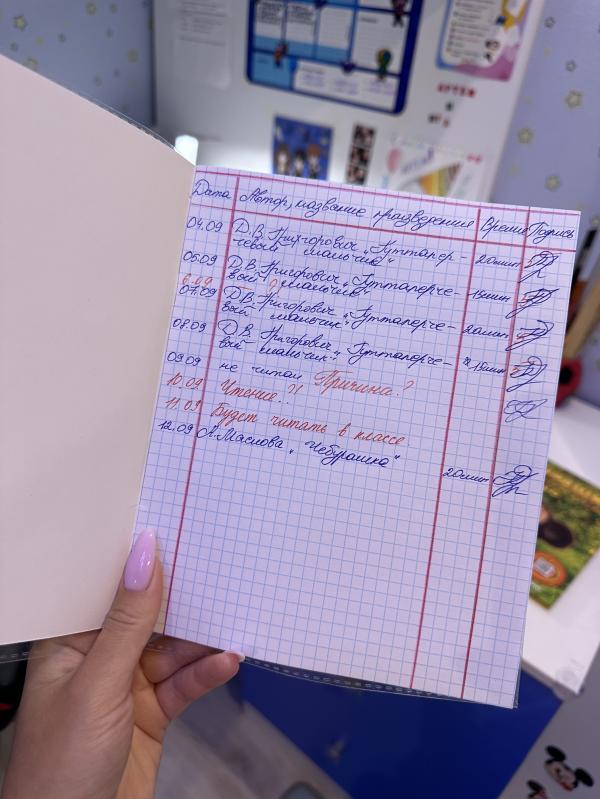 Дата Автор, название произведения Время Подпись
04.09 Д.В. Григорович „Гуттапер-
чевый мальчик“ 20мин
05.09 Д.В. Григорович „Гуттаперче-
вый мальчик“ 15мин
6.09 — ?
07.09 Д.В. Григорович „Гуттаперче-
вый мальчик“ 20мин
08.09 Д.В. Григорович „Гуттаперче-
вый мальчик“ 15мин
09.09 не читал Причина?
10.09 Чтение?!
11.09 Будет читать в классе.
12.09 А. Маслова „Чебурашка“
20мин